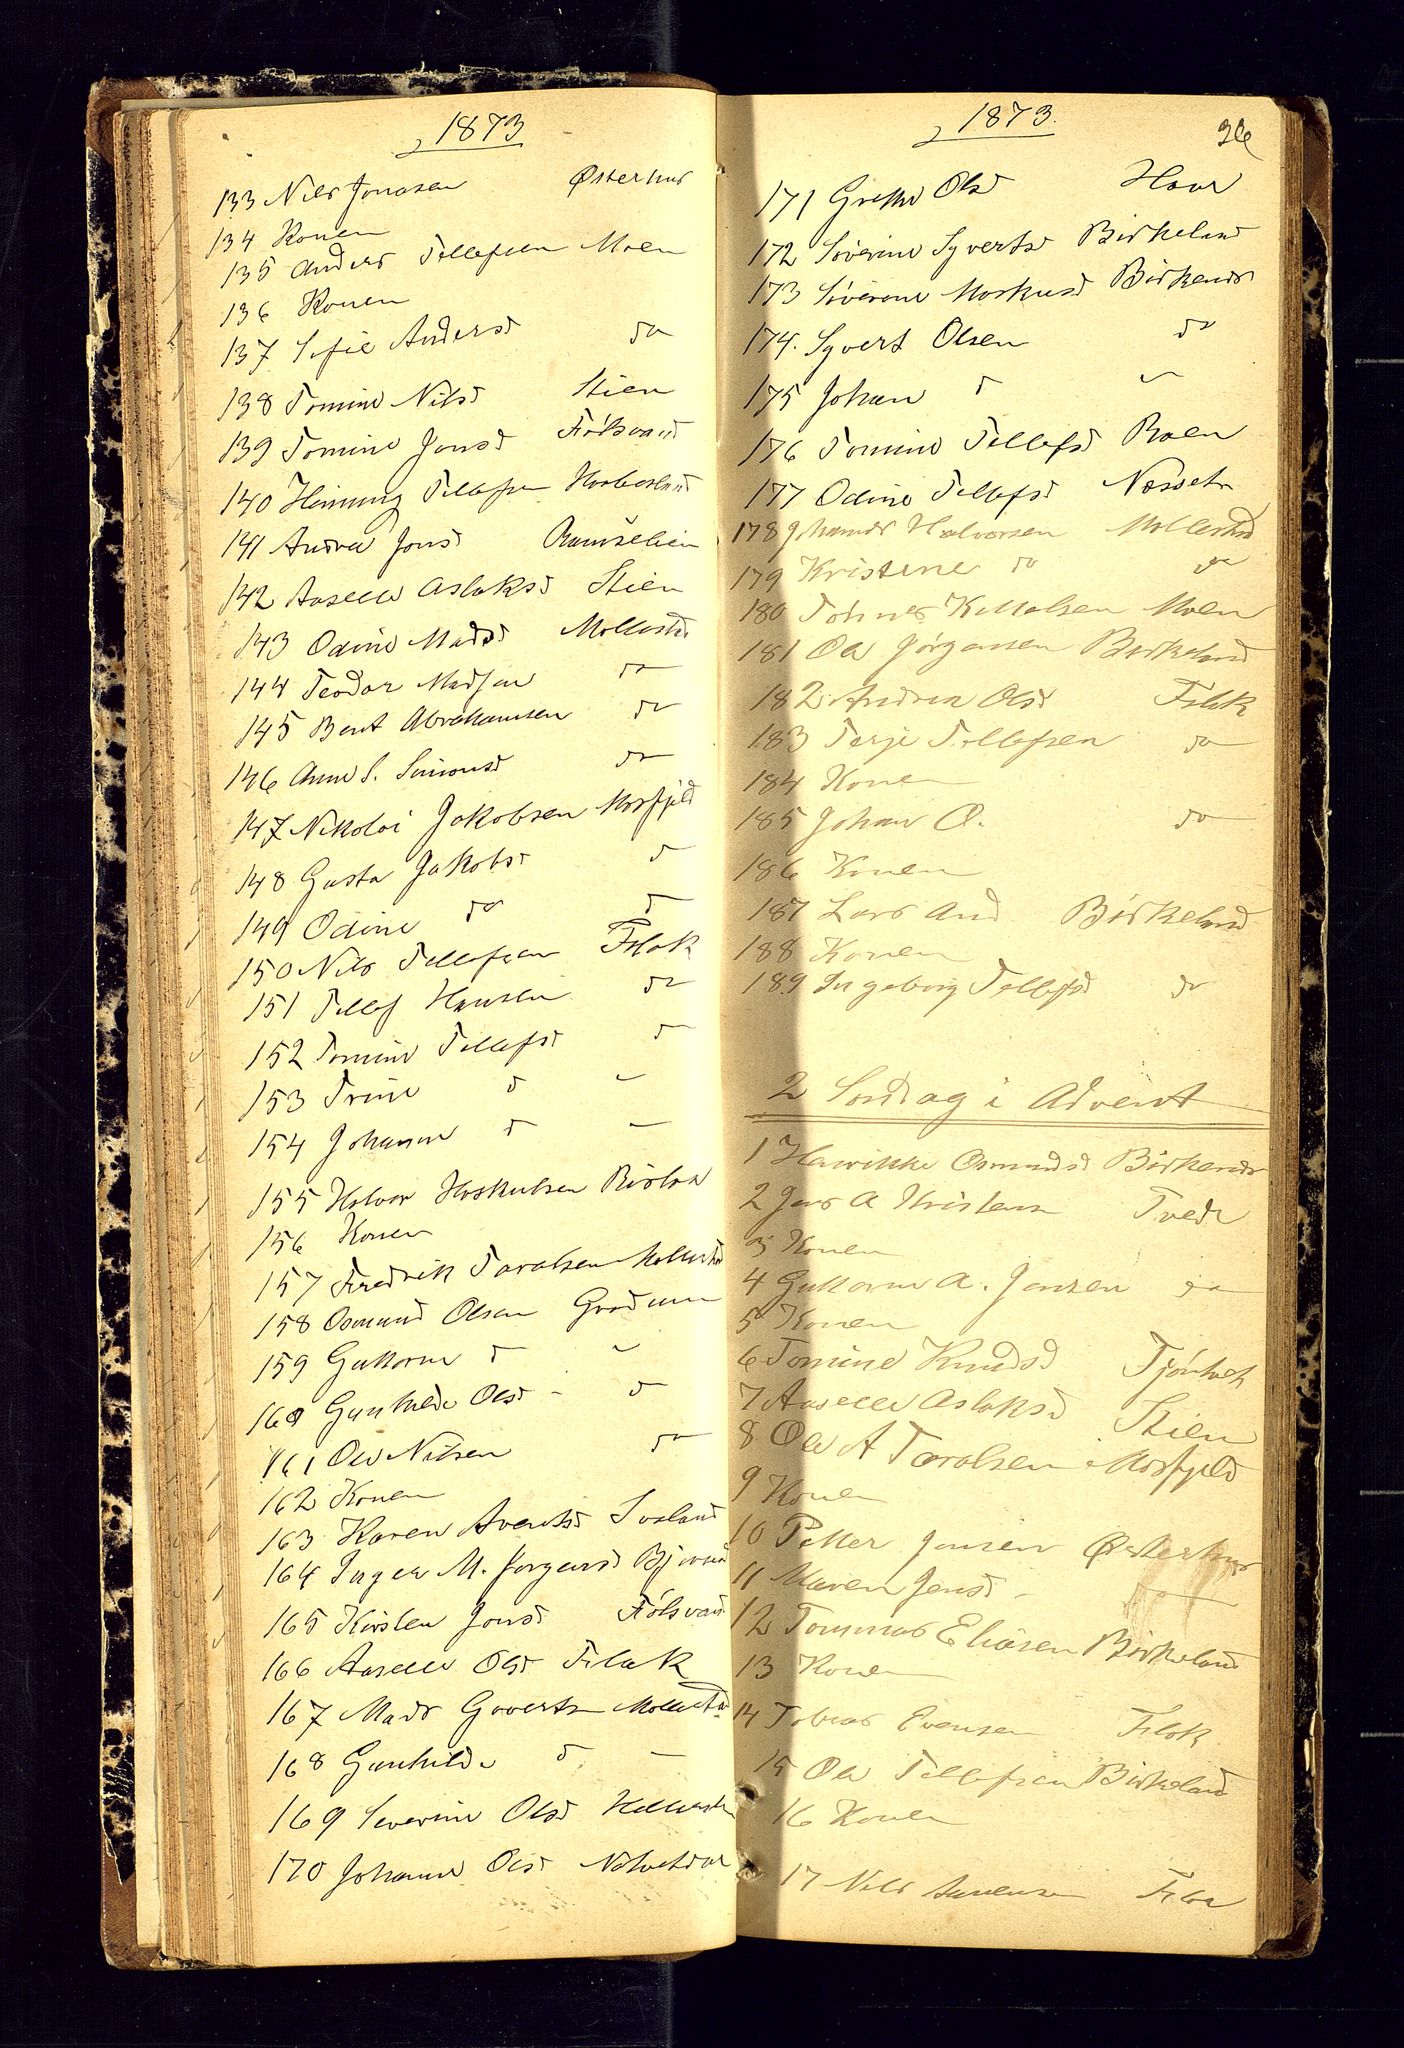 1873
133 Nils Jonasen Østerhus
134 Konen
135 Anders Tellefsen Moen
136 Konen
137 Sofie Andersd do
138 Tomine Nilsd Stien
139 Tomine Jonsd
140 Tellefsen
141 Andrea Jonsd
142 Aaselle Aslaksd Stien
143 Odine Madsd Mollestad
144 Teodor Madsen do
145 Bent Abrahamsen do
146 Anne S. Simonsd do
147 Nikolai Jakobsen Mosfjeld
148 Gusta Jakobsd d
149 Odine do d
150 Nils Tellefsen Flak
151 Tellef Hansen do
152 Tomine Tellefsd d
153 Trine d –
154 Johanne d –
155 Halvor
156 Konen
157 Fredrik Taralsen Mollestad
158 Osmund Olsen
159 Guttorm d –
160 Gunhilde Olsd – d
161 Ole Nilsen do
162 Konen
163 Karen
164 M. Jørgensd
165 Kirsten Jonsd
166 Aaselle Olsd Flak
167 Mads Govertsen Mollestad
168 Gunhilde d –
169 Severine Olsd
170 Johanne Olsd
1873.
36
171 Grethe Olsd
172 Søverine Syvertsd Birkeland
173 Søverine Markusd Birkenes
174. Syvert Olsen do
175 Johan d –
176 Tomine Tellefsd Roen
177 Odine Tellefsd Næsset
178 Halvorsen Mollestad
179 Kristine do do
180 Moen
181 Ole Jørgensen Birkeland
182 Andrea Olsd Flak
183 Terje Tellefsen do
184 Konen
185 Johan O. do
186 Konen
187 Lars And Birkeland
188 Konen
189 Ingeborg Tellefsd do
2 Søndag i Advent
1 Henrikke Osmundsd Birkenes
2 Jens A Kristens Tvede
3 Konen
4 Guttorm A. Jensen do
5 Konen
6 Tomine Knudsd
7 Aaselle Aslaksd Stien
8 Ole A Taralsen Mosfjeld
9 Konen
10 Petter Jensen Østerhus
11 Maren Jensd – do
12 Tommas Eliasen Birkeland
13 Konen
14 Tobias Evensen Flak
15 Ole Tellefsen Birkeland
16 Konen
17 Nils